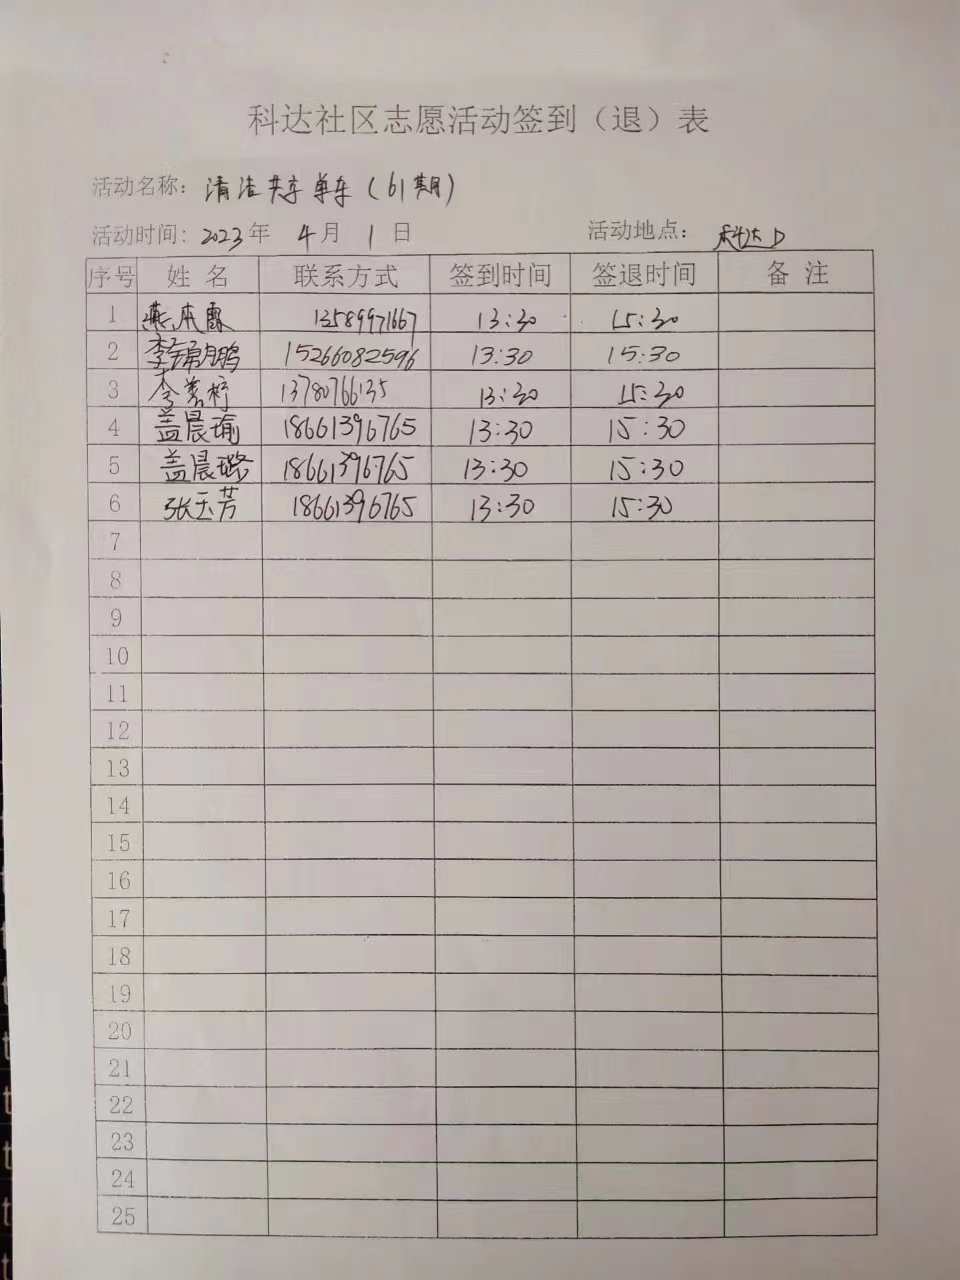 科达社区志愿活动签到（退）表
活动名称：清洁共享单车（61期）
活动时间：2023年 4月 1日 活动地点：科达
序号 姓名 联系方式 签到时间 签退时间 备注
1 13589971667 13:30 15:30
2 李锦鹏 15266082596 13:30 15:30
3 13780766135 13:30 15:30
4 盖晨瑜 18661396765 13:30 15:30
5 盖晨璐 18661396765 13:30 15:30
6 张玉芳 18661396765 13:30 15:30
7
8
9
10
11
12
13
14
15
16
17
18
19
20
21
22
23
24
25
t
t
t
t
t
t